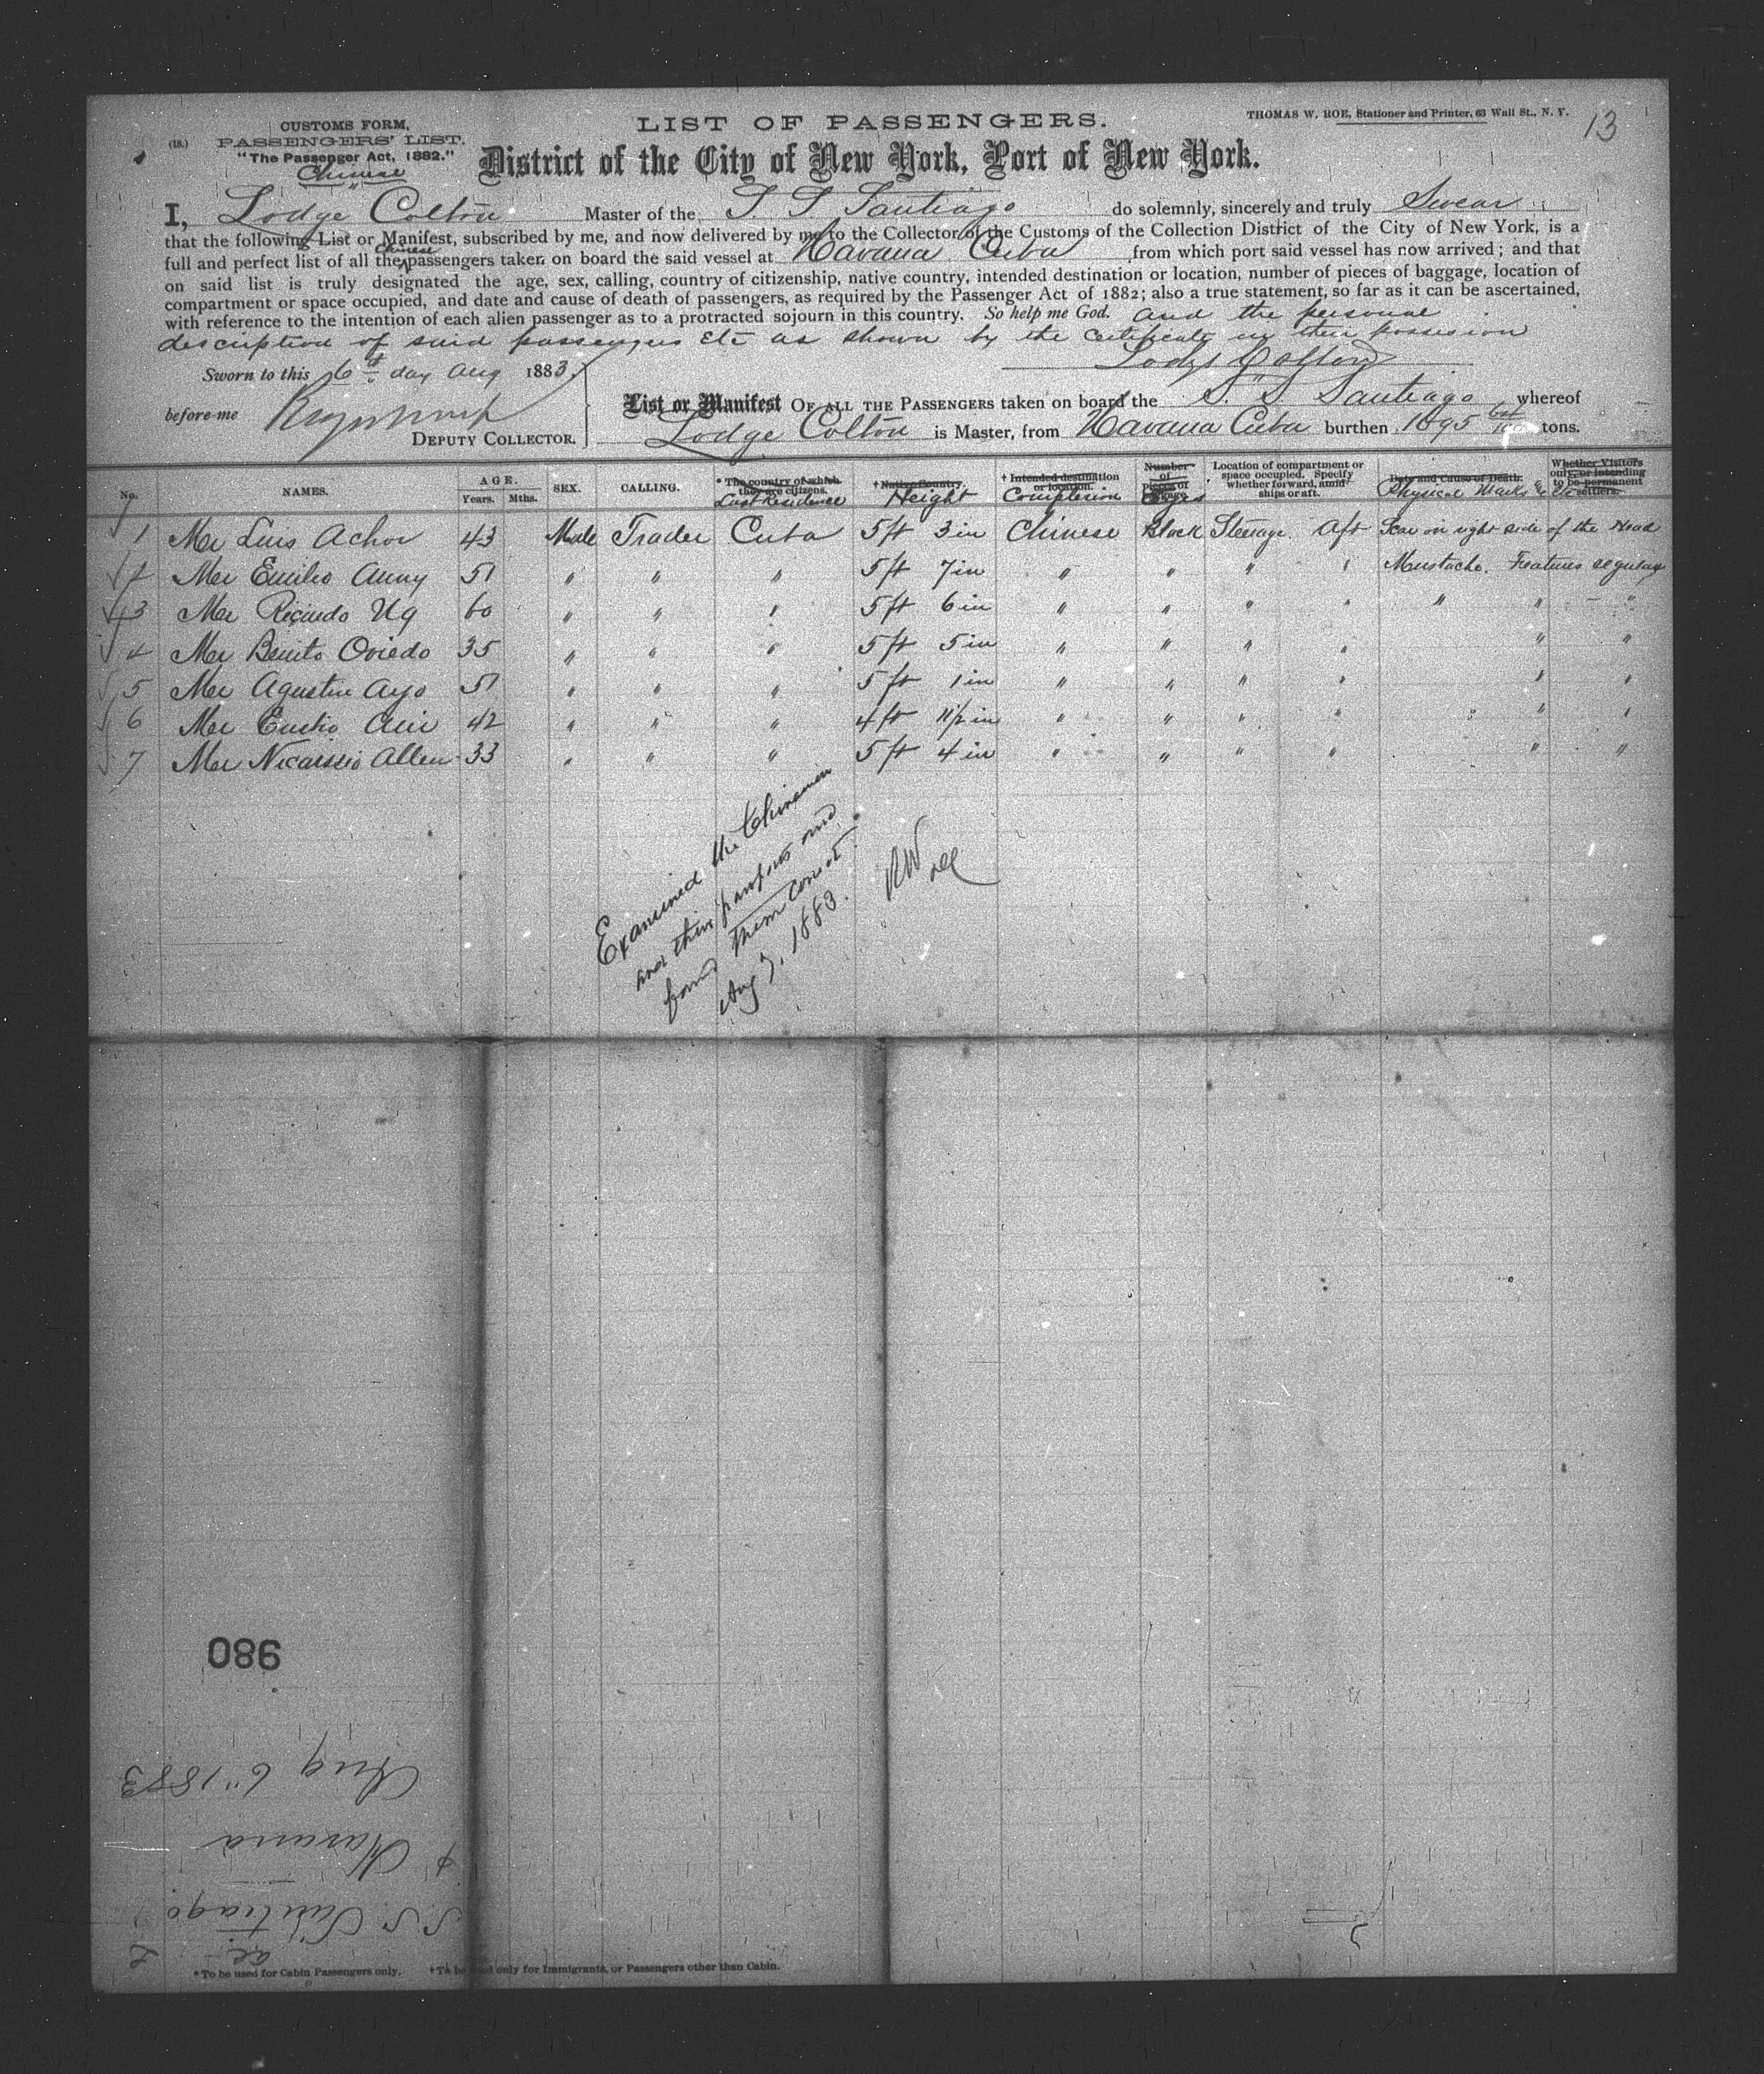 13
THOMAS W. ROE, Stationer and Printer, 63 Wall St., N. Y.
(18.)
CUSTOMS FORM,
PASSENGERS' LIST.
"The Passenger Act, 1882."
Chinese
LIST OF PASSENGERS.
District of the City of New York, Port of New York.
I, Lodge Colton Master of the S. S. Santiago do solemnly, sincerely and truly Swear
that the following List or Manifest, subscribed by me, and now delivered by me to the Collector of the Customs of the Collection District of the City of New York, is a
full and perfect list of all the Chinese passengers taken on board the said vessel at Havana Cuba from which port said vessel has now arrived; and that
on said list is truly designated the age, sex, calling, country of citizenship, native country, intended destination or location, number of pieces of baggage, location of
compartment or space occupied, and date and cause of death of passengers, as required by the Passenger Act of 1882; also a true statement, so far as it can be ascertained,
with reference to the intention of each alien passenger as to a protracted sojourn in this country. So help me God. and the personal
description of said passengers Etc as shown by the certificate in their possession
Lodge Colton
Sworn to this 6th day Aug 1883,
before me
DEPUTY COLLECTOR.
List or Manifest OF ALL THE PASSENGERS taken on board the S. S. Santiago whereof
Lodge Colton is Master, from Havana Cuba burthen 1895 tons.
No. NAMES. AGE. Years. Mths. SEX. CALLING. * The country of which they are citizens. Last Residence † Native Country. Height † Intended destination or location. Complexion Number of pieces of Eyes Location of compartment or space occupied. Specify whether forward, amid ships or aft. Date and Cause of Death. Physical Marks &c Whether Visitors only, or intending to be permanent settlers.
1 Mr Luis Achon 43 Male Trader Cuba 5 ft 3 in Chinese Black Steerage Aft Scar on right side of the Head
2 Mr Emilio 51 " " " 5 ft 7 in " " " " Mustache. Features regular
3 Mr Ricardo Ug 60 " " " 5 ft 6 in " " " " " " "
4 Mr Benito Oviedo 35 " " " 5 ft 5 in " " " " " "
5 Mr Agustin Ayo 51 " " " 5 ft 1 in " " " " " "
6 Mr 42 " " " 4 ft 11½ in " " " " " "
7 Mr Allen 33 " " " 5 ft 4 in " " " " " "
Examined the Chinamen
and their passports and
found them correct.
Aug 7, 1883.
086
Aug 6" 1883
Havana
S.S. Santiago
* To be used for Cabin Passengers only. † To be used only for Immigrants, or Passengers other than Cabin.